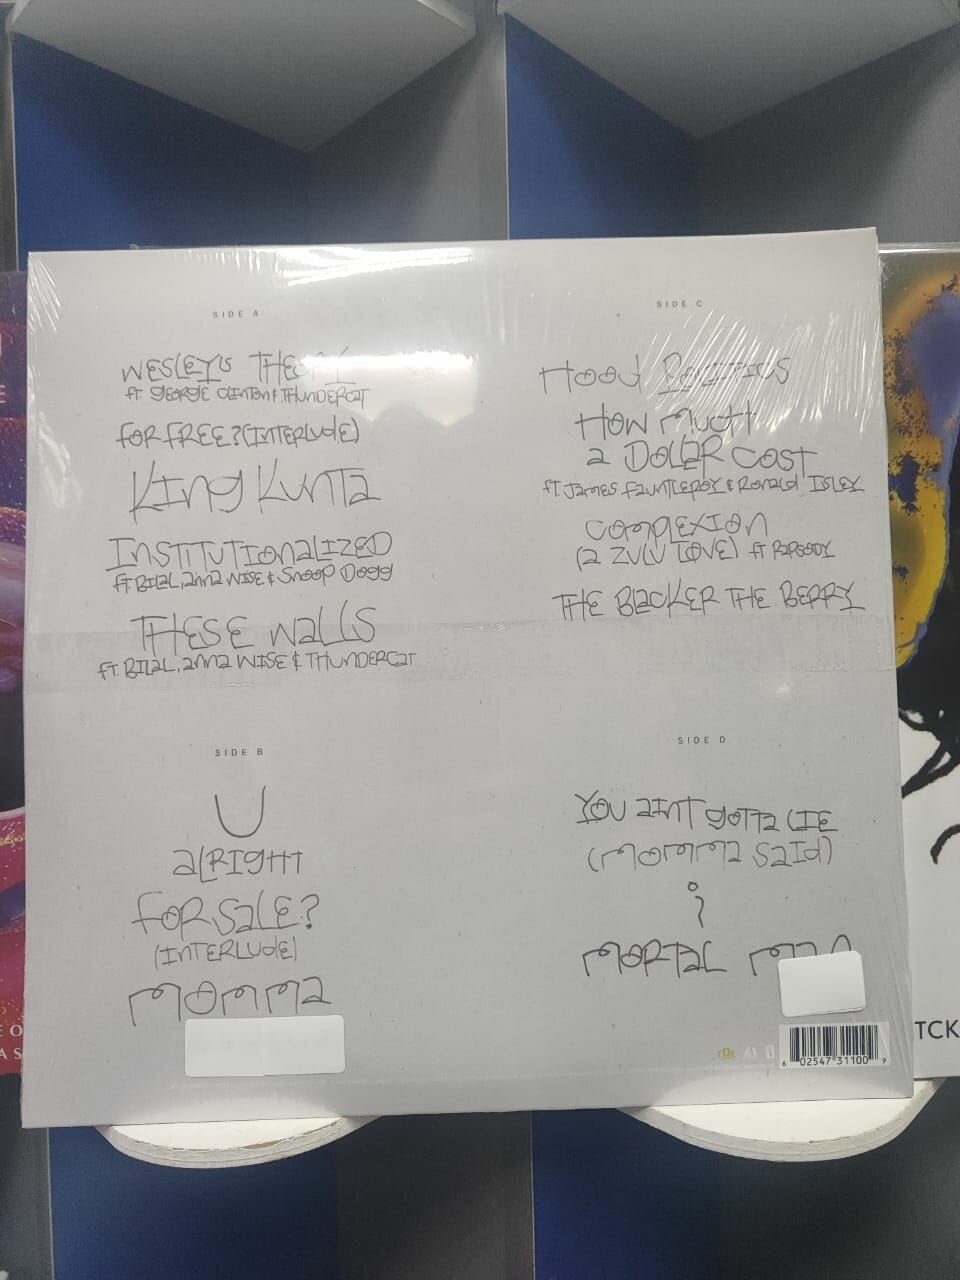 SIDE A
WESLEY'S THEORY
FT. GEORGE CLINTON & THUNDERCAT
FOR FREE? (INTERLUDE)
KING KUNTA
INSTITUTIONALIZED
FT. BILAL, ANNA WISE & SNOOP DOGG
THESE WALLS
FT. BILAL, ANNA WISE & THUNDERCAT
SIDE B
U
ALRIGHT
FOR SALE?
(INTERLUDE)
MOMMA
SIDE C
HOOD POLITICS
HOW MUCH
A DOLLAR COST
FT. JAMES FAUNTLEROY & RONALD ISLEY
COMPLEXION
(A ZULU LOVE) FT RAPSODY
THE BLACKER THE BERRY
SIDE D
YOU AINT GOTTA LIE
(MOMMA SAID)
i
MORTAL MAN
TDE
6 02547 31100 9
TCK